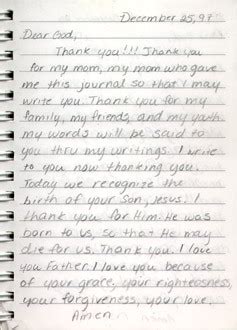 December 25, 97
Dear God,
Thank you!!! Thank you
for my mom, my mom who gave
me this journal so that I may
write you. Thank you for my
family, my friends, and my youth.
my words will be said to
you thru my writings. I write
to you now thanking you.
Today we recognize the
birth of your Son, Jesus. I
thank you for Him. He was
born to us, so that He may
die for us. Thank you. I love
you Father. I love you because
of your grace, your righteosness,
your forgiveness, your love.
Amen